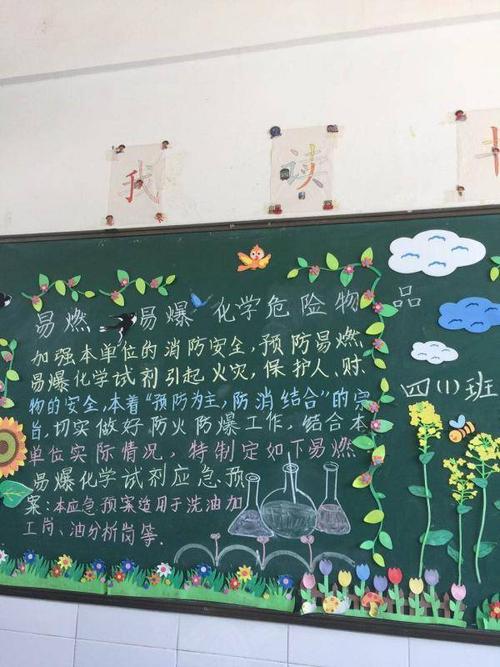 我 读 书
易燃 易爆 化学危险物品
加强本单位的消防安全,预防易燃
易爆化学试剂引起火灾,保护人、财
物的安全,本着“预防为主,防消结合”的宗
旨,切实做好防火防爆工作,结合本
单位实际情况,特制定如下易燃
易爆化学试剂应急预
案:本应急预案适用于洗油加
工岗、油分析岗等.
四(1)班